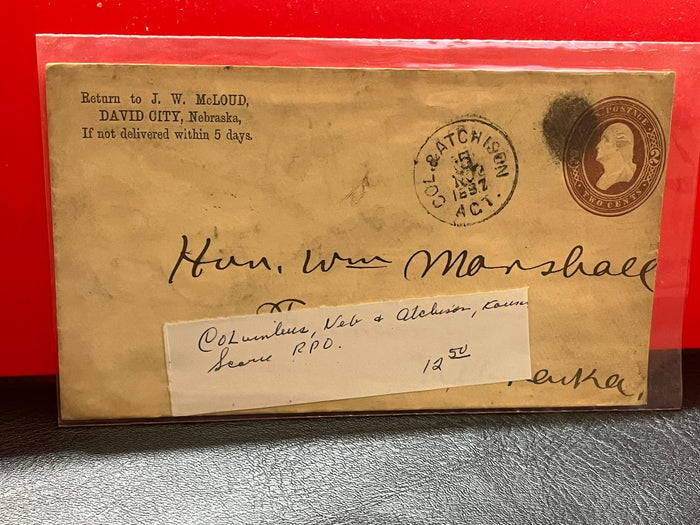 Return to J. W. McLOUD,
DAVID CITY, Nebraska,
If not delivered within 5 days.
COL. & ATCHISON
5
1887
ACT.
POSTAGE
TWO CENTS
2
Hon. Wm Marshall
Columbus, Neb & Atchison, Kans
Scarce RPO.
12 50